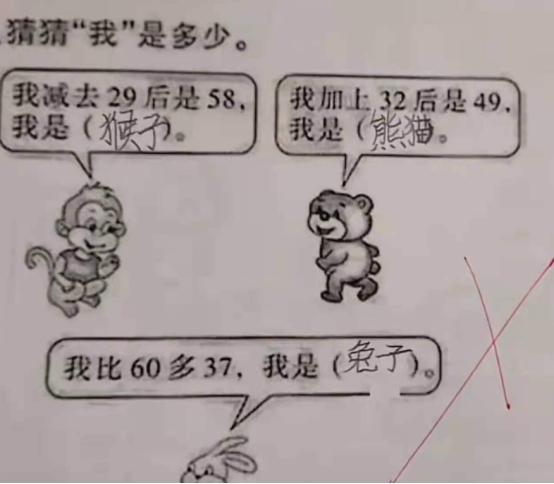 猜猜“我”是多少。
我减去29后是58,
我是(猴子)。
我加上32后是49,
我是(熊猫)。
我比60多37，我是(兔子)。